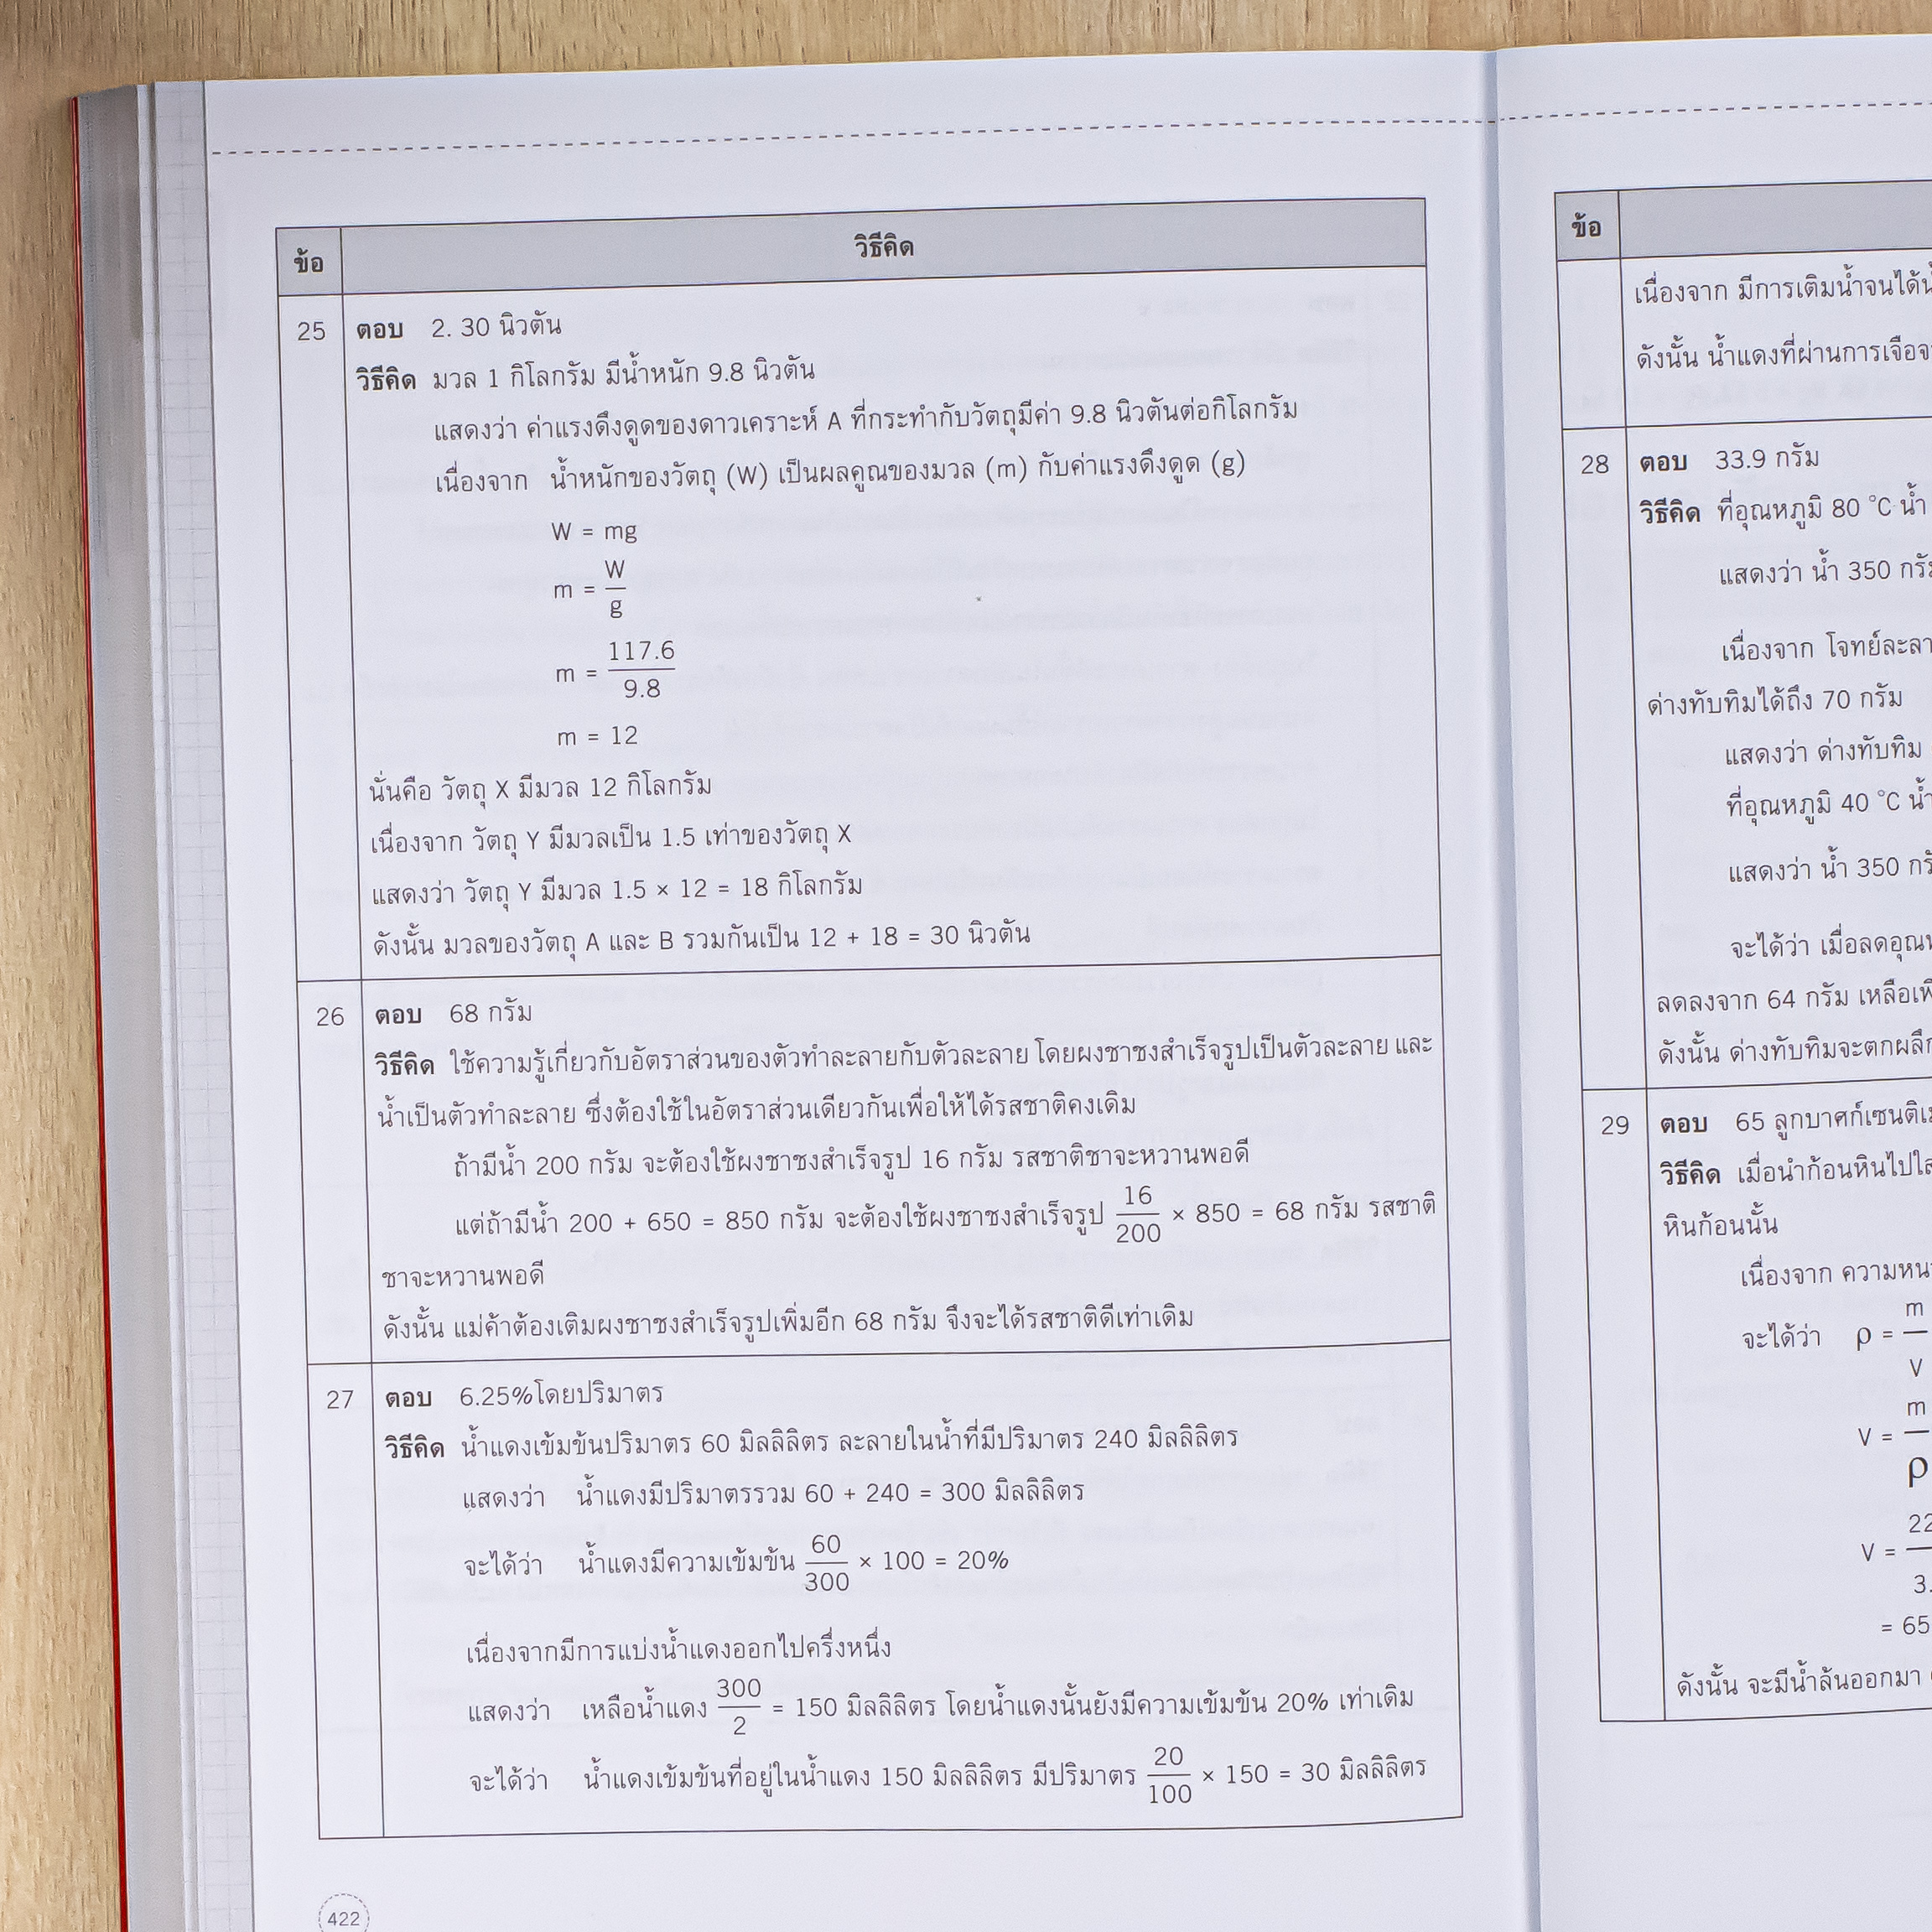 ข้อ วิธีคิด
25 ตอบ 2. 30 นิวตัน
วิธีคิด มวล 1 กิโลกรัม มีน้ำหนัก 9.8 นิวตัน
แสดงว่า ค่าแรงดึงดูดของดาวเคราะห์ A ที่กระทำกับวัตถุมีค่า 9.8 นิวตันต่อกิโลกรัม
เนื่องจาก น้ำหนักของวัตถุ (W) เป็นผลคูณของมวล (m) กับค่าแรงดึงดูด (g)
W = mg
m = W/g
m = 117.6/9.8
m = 12
นั่นคือ วัตถุ X มีมวล 12 กิโลกรัม
เนื่องจาก วัตถุ Y มีมวลเป็น 1.5 เท่าของวัตถุ X
แสดงว่า วัตถุ Y มีมวล 1.5 × 12 = 18 กิโลกรัม
ดังนั้น มวลของวัตถุ A และ B รวมกันเป็น 12 + 18 = 30 นิวตัน
26 ตอบ 68 กรัม
วิธีคิด ใช้ความรู้เกี่ยวกับอัตราส่วนของตัวทำละลายกับตัวละลาย โดยผงชาชงสำเร็จรูปเป็นตัวละลาย และ
น้ำเป็นตัวทำละลาย ซึ่งต้องใช้ในอัตราส่วนเดียวกันเพื่อให้ได้รสชาติคงเดิม
ถ้ามีน้ำ 200 กรัม จะต้องใช้ผงชาชงสำเร็จรูป 16 กรัม รสชาติชาจะหวานพอดี
แต่ถ้ามีน้ำ 200 + 650 = 850 กรัม จะต้องใช้ผงชาชงสำเร็จรูป 16/200 × 850 = 68 กรัม รสชาติ
ชาจะหวานพอดี
ดังนั้น แม่ค้าต้องเติมผงชาชงสำเร็จรูปเพิ่มอีก 68 กรัม จึงจะได้รสชาติดีเท่าเดิม
27 ตอบ 6.25%โดยปริมาตร
วิธีคิด น้ำแดงเข้มข้นปริมาตร 60 มิลลิลิตร ละลายในน้ำที่มีปริมาตร 240 มิลลิลิตร
แสดงว่า น้ำแดงมีปริมาตรรวม 60 + 240 = 300 มิลลิลิตร
จะได้ว่า น้ำแดงมีความเข้มข้น 60/300 × 100 = 20%
เนื่องจากมีการแบ่งน้ำแดงออกไปครึ่งหนึ่ง
แสดงว่า เหลือน้ำแดง 300/2 = 150 มิลลิลิตร โดยน้ำแดงนั้นยังมีความเข้มข้น 20% เท่าเดิม
จะได้ว่า น้ำแดงเข้มข้นที่อยู่ในน้ำแดง 150 มิลลิลิตร มีปริมาตร 20/100 × 150 = 30 มิลลิลิตร
422
ข้อ
เนื่องจาก มีการเติมน้ำจนได้
ดังนั้น น้ำแดงที่ผ่านการ
28 ตอบ 33.9 กรัม
วิธีคิด ที่อุณหภูมิ 80 °C น้ำ
แสดงว่า น้ำ 350
เนื่องจาก โจทย์
ด่างทับทิมได้ถึง 70 กรัม
แสดงว่า ด่างทับทิม
ที่อุณหภูมิ 40 °C
แสดงว่า น้ำ 350
จะได้ว่า เมื่อ
ลดลงจาก 64 กรัม
ดังนั้น ด่างทับทิมจะ
29 ตอบ 65
วิธีคิด เมื่อนำก้อนหินไป
หินก้อนนั้น
เนื่องจาก
จะได้ว่า ρ = m/V
V = m/ρ
V =
= 65
ดังนั้น จะมีน้ำล้นออกมา